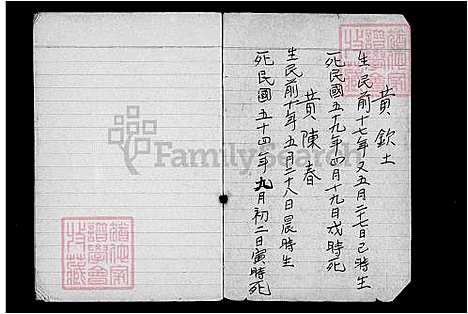 黃欽土
生民前十七年又五月二七日己時生
死民國五十九年四月十九日戌時死
黃陳春
生民前十年五月二十八日晨時生
死民國五十四年九月初二日寅時死
FamilySearch